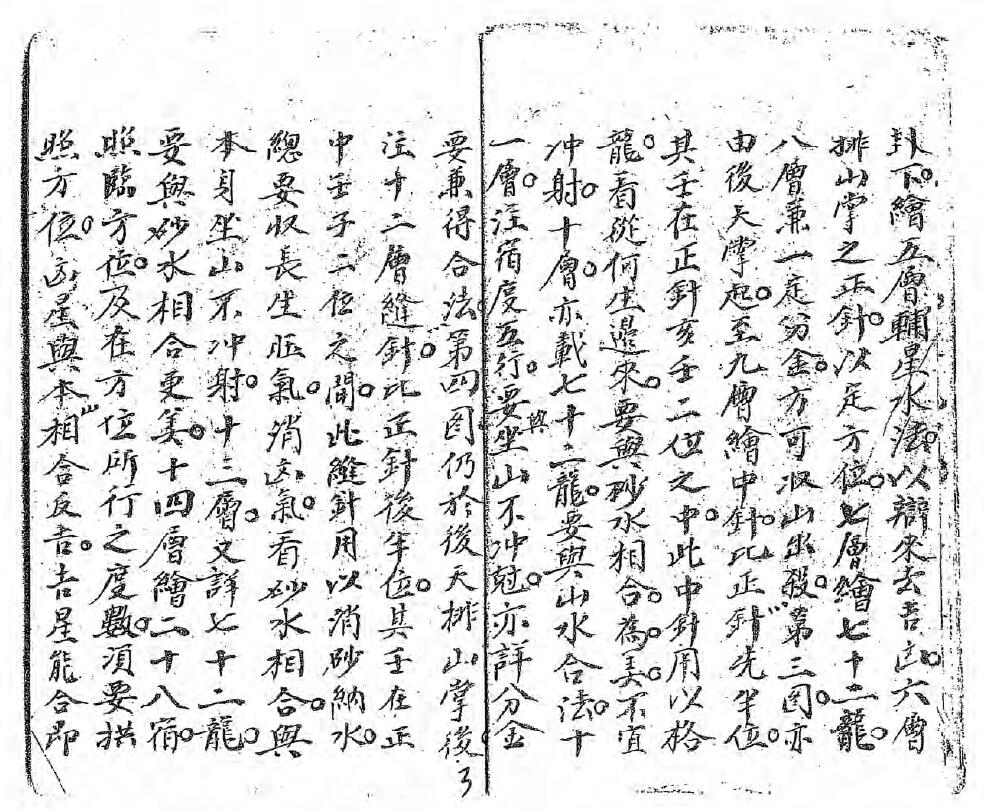 卦下。繪五層輔星水法。以辯來去吉凶。六層
排山掌之正針。以定方位。七層繪七十二龍。
八層兼一定分金。方可收山出殺。第三圖。亦
由後天掌起。至九層繪中針。比正針先半位。
其壬在正針亥壬二位之中。此中針用以格
龍。看從何生邊來。要與砂水相合。為美。不宜
冲射。十層。亦載七十二龍。要與山水合法。十
一層。注宿度五行。要與坐山不冲尅。亦詳分金
要兼得合法。第四圖仍於後天排山掌後
注十二層縫針。比正針後半位。其壬在正
中壬子二位之間。此縫針用以消砂納水。
總要收長生旺氣。消凶氣。看砂水相合。與
本身坐山不冲射。十三層。又詳七十二龍。
要與砂水相合更美。十四層繪二十八宿。
照臨方位。及在方位所行之度數。須要拱
照方位。凶星與本山相合反吉。吉星能合即
3